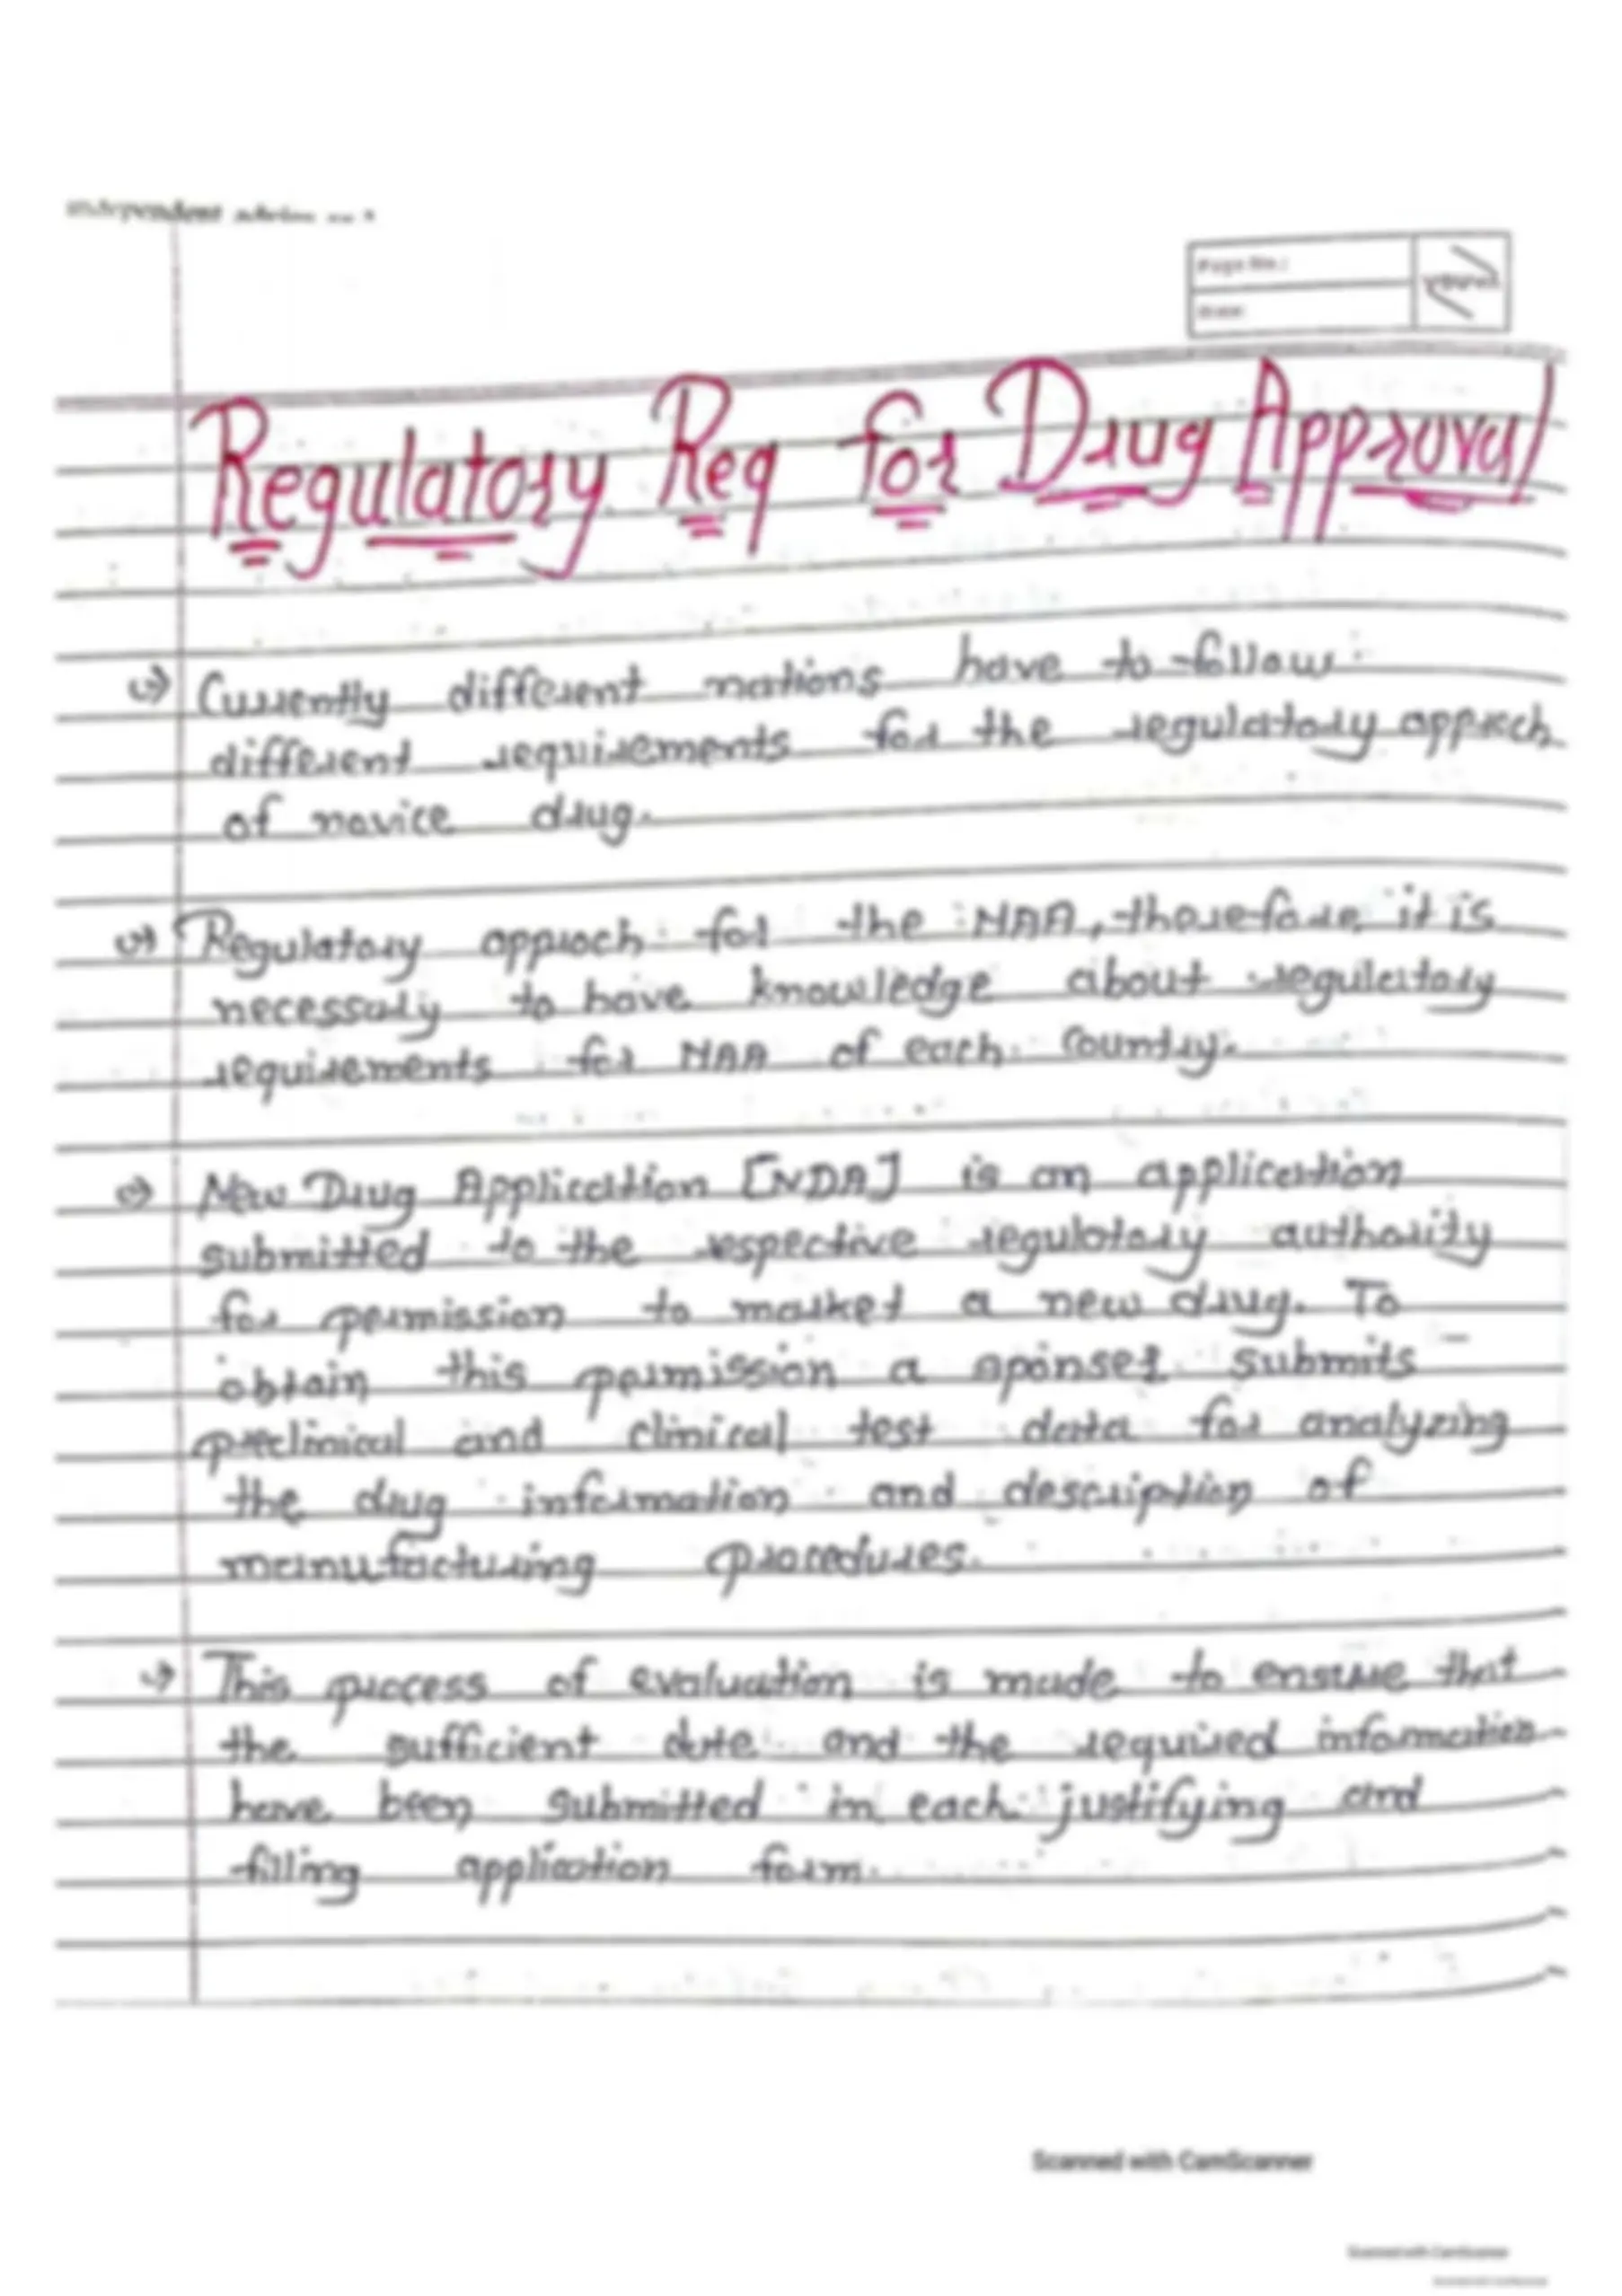 independent
Page No.:
Date:
YOUVA
Regulatory Req for Drug Approval
Currently different nations have to follow
different requirements for the regulatory approch
of novice drug.
Regulatory approch for the MAA, therefore, it is
necessary to have knowledge about regulatory
requirements for MAA of each country.
New Drug Application [NDA] is an application
submitted to the respective regulatory authority
for permission to market a new drug. To
obtain this permission a sponser submits
preclinical and clinical test data for analyzing
the drug information and description of
manufacturing procedures.
This process of evaluation is made to ensure that
the sufficient date and the required information
have been submitted in each justifying and
filling application form.
Scanned with CamScanner
Scanned with CamScanner